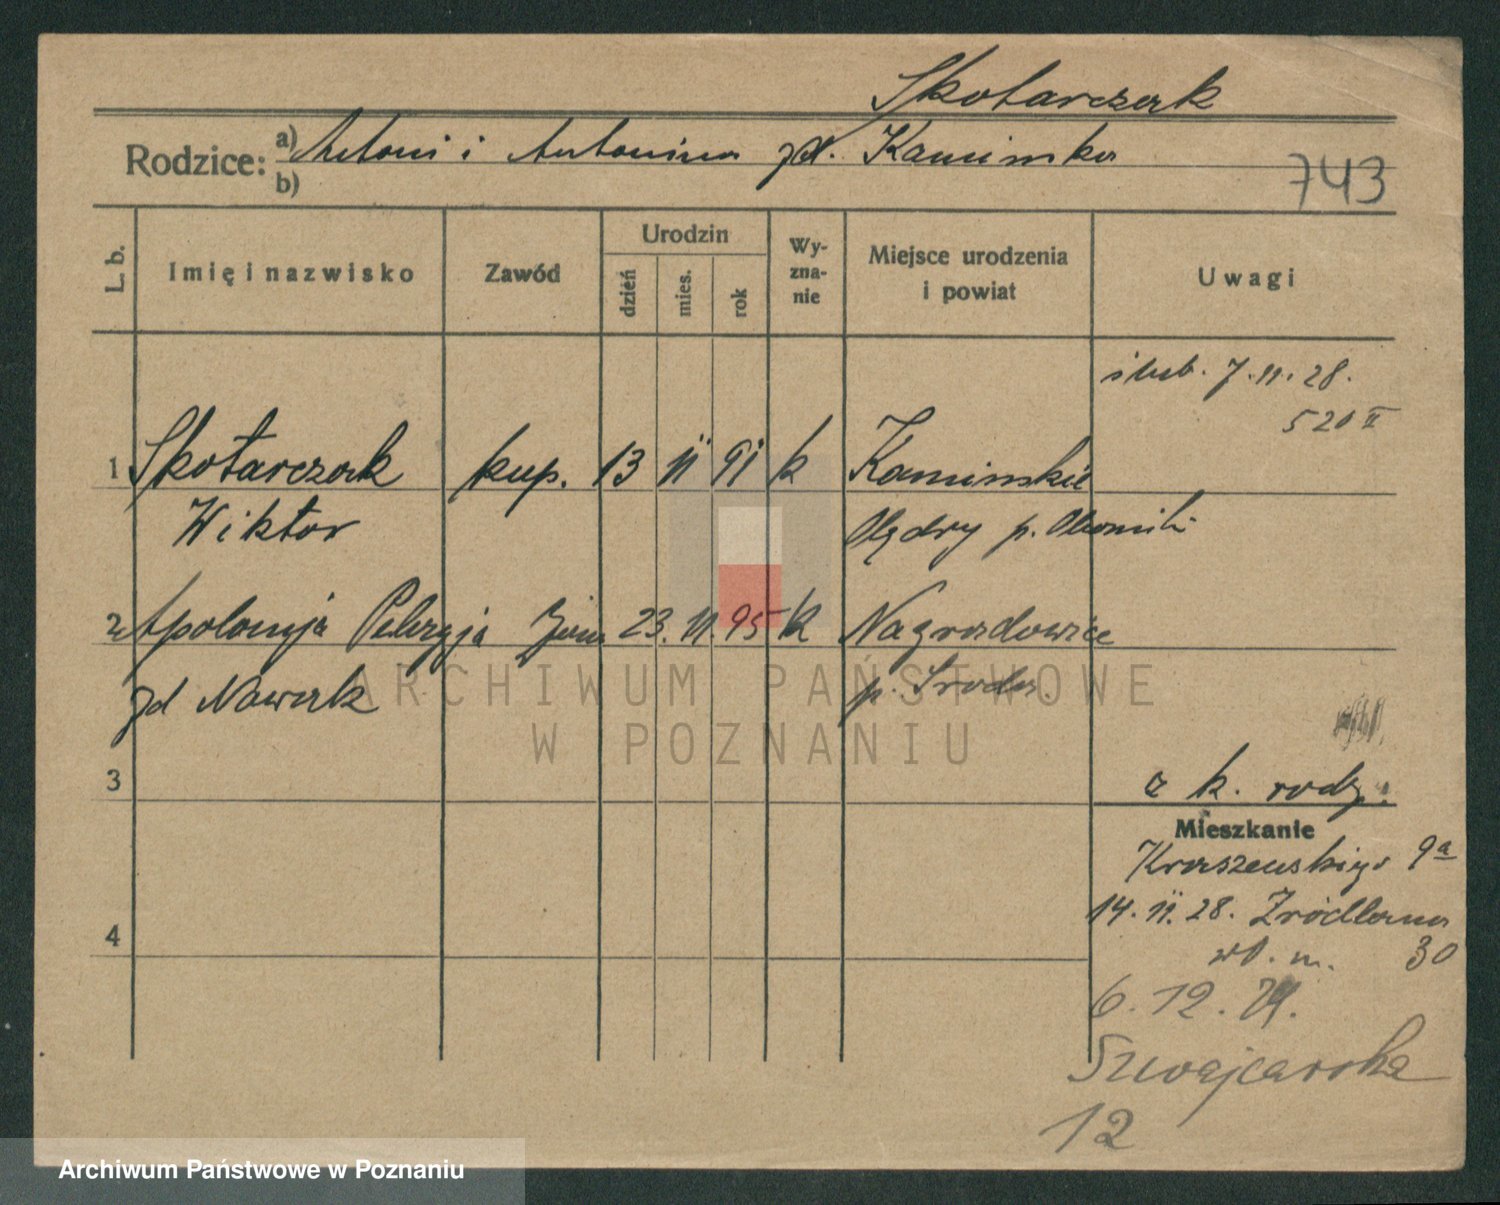 Skotarczak
Rodzice: a) Antoni i Antonina zd. Kaminska
b)
743
L. b. Imię i nazwisko Zawód Urodzin dzień mies. rok Wy-zna-nie Miejsce urodzenia i powiat Uwagi
ślub. 7.11.28.
520 II
1 Skotarczak kup. 13 11 91 k Kaminskie
Wiktor Olędry p. Oborniki
2 Apolonja Pelagja żona 23. 11. 95 k Nagradowice
zd Nawrak p. Środa.
3
z k. rodz.
Mieszkanie
Kraszewskiego 9a
14. 11. 28. Źródlana
4
wł. m. 30
6. 12.
Szwajcarska
12
ARCHIWUM PAŃSTWOWE
W POZNANIU
Archiwum Państwowe w Poznaniu